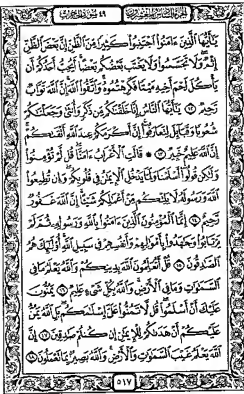 الجزء السادس والعشرون ٤٩ سورة الحجرات
يَٰٓأَيُّهَا ٱلَّذِينَ ءَامَنُوا۟ ٱجْتَنِبُوا۟ كَثِيرًا مِّنَ ٱلظَّنِّ إِنَّ بَعْضَ ٱلظَّنِّ
إِثْمٌ وَلَا تَجَسَّسُوا۟ وَلَا يَغْتَب بَّعْضُكُم بَعْضًا أَيُحِبُّ أَحَدُكُمْ أَن
يَأْكُلَ لَحْمَ أَخِيهِ مَيْتًا فَكَرِهْتُمُوهُ وَٱتَّقُوا۟ ٱللَّهَ إِنَّ ٱللَّهَ تَوَّابٌ
رَّحِيمٌ ١٢ يَٰٓأَيُّهَا ٱلنَّاسُ إِنَّا خَلَقْنَٰكُم مِّن ذَكَرٍ وَأُنثَىٰ وَجَعَلْنَٰكُمْ
شُعُوبًا وَقَبَآئِلَ لِتَعَارَفُوٓا۟ إِنَّ أَكْرَمَكُمْ عِندَ ٱللَّهِ أَتْقَىٰكُمْ
إِنَّ ٱللَّهَ عَلِيمٌ خَبِيرٌ ١٣ قَالَتِ ٱلْأَعْرَابُ ءَامَنَّا قُل لَّمْ تُؤْمِنُوا۟
وَلَٰكِن قُولُوٓا۟ أَسْلَمْنَا وَلَمَّا يَدْخُلِ ٱلْإِيمَٰنُ فِى قُلُوبِكُمْ وَإِن تُطِيعُوا۟
ٱللَّهَ وَرَسُولَهُۥ لَا يَلِتْكُم مِّنْ أَعْمَٰلِكُمْ شَيْـًٔا إِنَّ ٱللَّهَ غَفُورٌ
رَّحِيمٌ ١٤ إِنَّمَا ٱلْمُؤْمِنُونَ ٱلَّذِينَ ءَامَنُوا۟ بِٱللَّهِ وَرَسُولِهِۦ ثُمَّ لَمْ
يَرْتَابُوا۟ وَجَٰهَدُوا۟ بِأَمْوَٰلِهِمْ وَأَنفُسِهِمْ فِى سَبِيلِ ٱللَّهِ أُو۟لَٰٓئِكَ هُمُ
ٱلصَّٰدِقُونَ ١٥ قُلْ أَتُعَلِّمُونَ ٱللَّهَ بِدِينِكُمْ وَٱللَّهُ يَعْلَمُ مَا فِى
ٱلسَّمَٰوَٰتِ وَمَا فِى ٱلْأَرْضِ وَٱللَّهُ بِكُلِّ شَىْءٍ عَلِيمٌ ١٦ يَمُنُّونَ
عَلَيْكَ أَنْ أَسْلَمُوا۟ قُل لَّا تَمُنُّوا۟ عَلَىَّ إِسْلَٰمَكُم بَلِ ٱللَّهُ يَمُنُّ
عَلَيْكُمْ أَنْ هَدَىٰكُمْ لِلْإِيمَٰنِ إِن كُنتُمْ صَٰدِقِينَ ١٧ إِنَّ
ٱللَّهَ يَعْلَمُ غَيْبَ ٱلسَّمَٰوَٰتِ وَٱلْأَرْضِ وَٱللَّهُ بَصِيرٌۢ بِمَا تَعْمَلُونَ ١٨
٥١٧